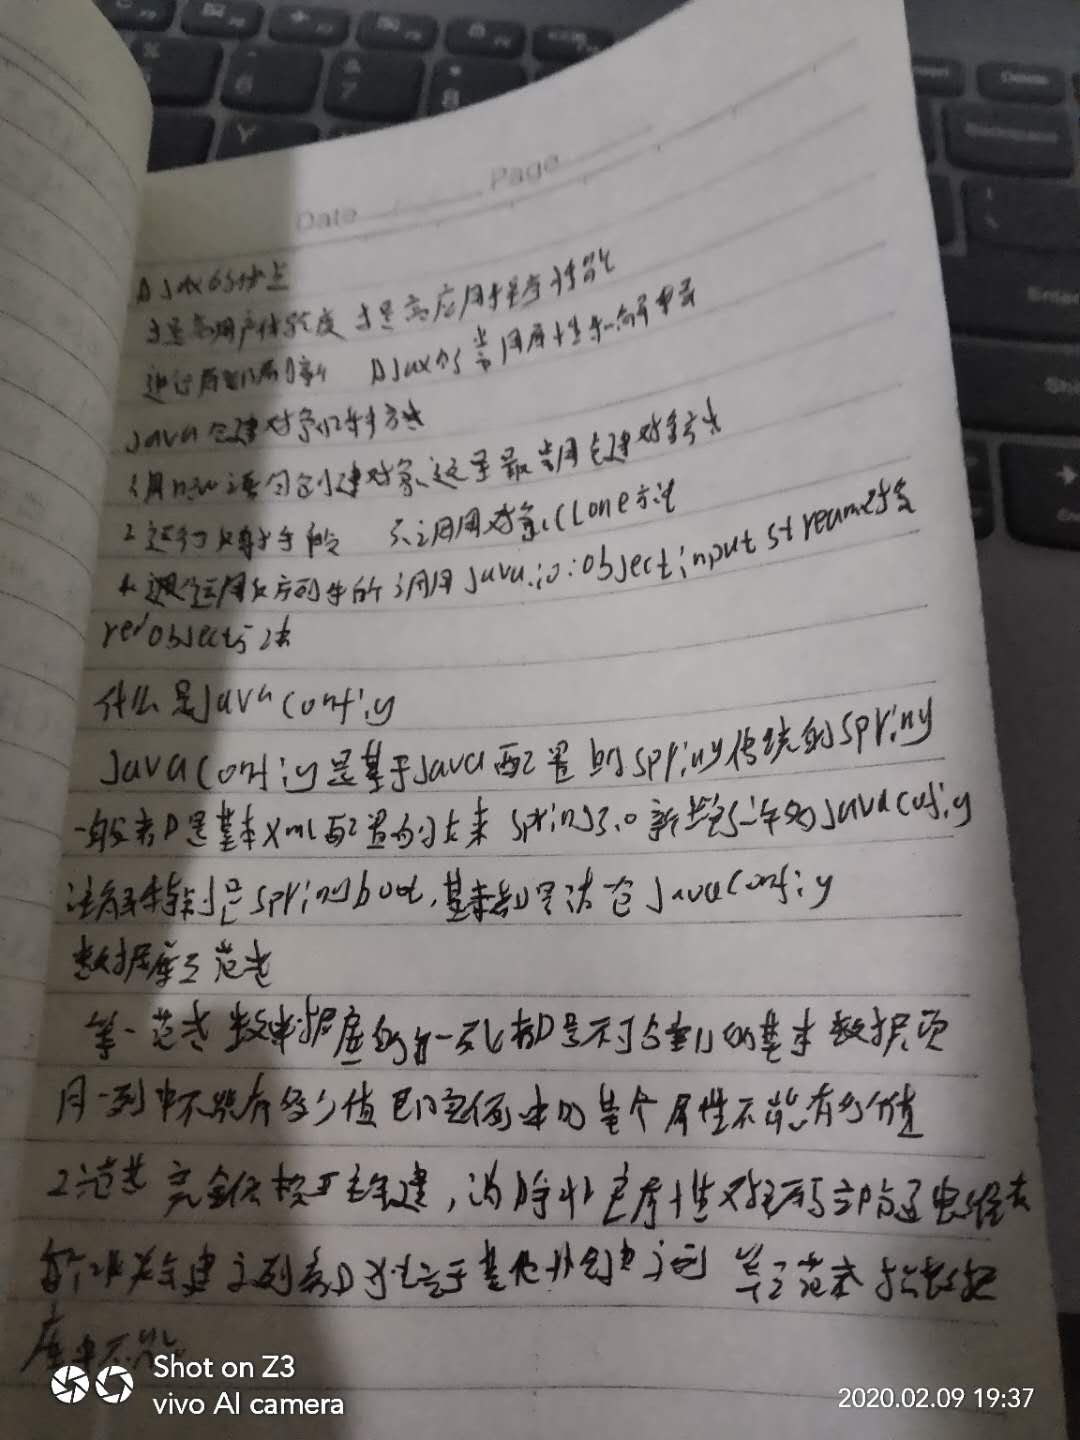 Date Page
AJax的优点
提高用户体验度 提高应用程序性能
进行局部刷新 AJax的常用属性
Java创建对象的4种方法
1用new语句创建对象,这是最常用创建对象方式
2 运行反射手段 3.调用对象.Clone方法
4 通过运用反序列化手段 调用Java.io:Objectinput stream对象
redobject方法
什么是Java Config
Java Config是基于Java配置的Spring传统的Spring
一般都是基本Xml配置的 后来 Spring3.0新增 Java Config
特别是Springboot,基本都是清一色JavaConfig
数据库三范式
第一范式 数据库的每一列都是不可分割的基本数据项
同一列中不能有多个值 即实体中的某个属性不能有多个值
2范式 完全依赖于主键,消除非主属性对主码的部分函数依赖
每个非关键字列都 独立于其他非关键字列 第三范式 指数据
库中不能
Shot on Z3
vivo AI camera
2020.02.09 19:37